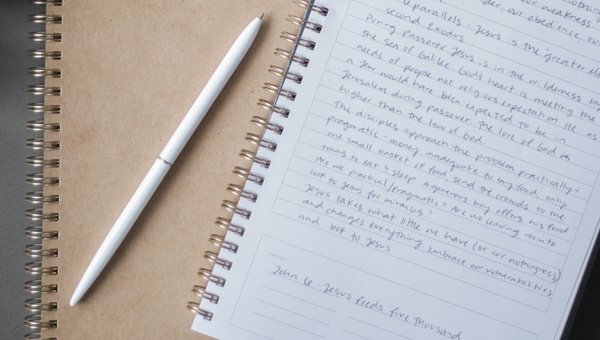 our weakness
our obedience, our
parallels - Jesus is the "greater
second Exodus
During Passover Jesus is in the wilderness by
the sea of Galilee. God's heart is meeting the
needs of people not religious expectation life as
a Jew would have been expected to be in
Jerusalem during passover. The love of God is
higher than the law of God
The disciples approach the problem practically &
pragmatic - money inadequate to buy food, only
one small basket of food send the crowds to the
towns to eat & sleep. A generous boy offers his food
Are we practical/pragmatic? Are we leaving room to
look to Jesus for miracles?
Jesus takes what little we have (or our nothingness)
and changes everything. Embrace our vulnerabilities
and look to Jesus.
John 6 - Jesus feeds five thousand